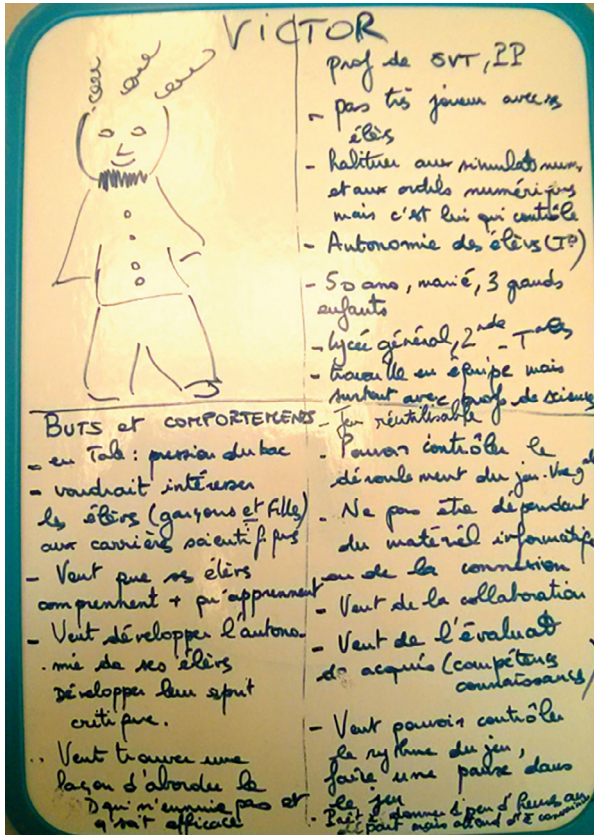 VICTOR
prof de SVT, PP
- pas très joueur avec ses
élèvs
- habituer aux simulat° num.
et aux outils numériques
mais c'est lui qui contrôle
- Autonomie des élèvs (TP)
- 50 ans, marié, 3 grands
enfants
- lycée général, 2nde - Tales
- travaille en équipe mais
surtout avec profs de sciences
BUTS et COMPORTEMENTS
- en Tale : pression du bac
- voudrait intéresser
les élèvs (garçons et filles)
aux carrières scientifiqus
- Veut que ses élèvs
comprennent + qu'apprennent
- Veut développer l'autono-
mie de ses élèvs
Développer leur esprit
critique.
- Veut trouver une
façon d'aborder le
D qui n'ennuie pas et
q soit efficace
- Jeu réutilisable
- Pouvoir contrôler le
déroulement du jeu.
- Ne pas être dépendant
du matériel informatique
ou de la connexion
- Veut de la collaboration
- Veut de l'évaluat°
de acquis (compétences
connaissances)
- Veut pouvoir contrôler
le rythme du jeu,
faire une pause dans
le jeu
- Prêt à donner 1 peu d'heures au
départ mais attend d'ê